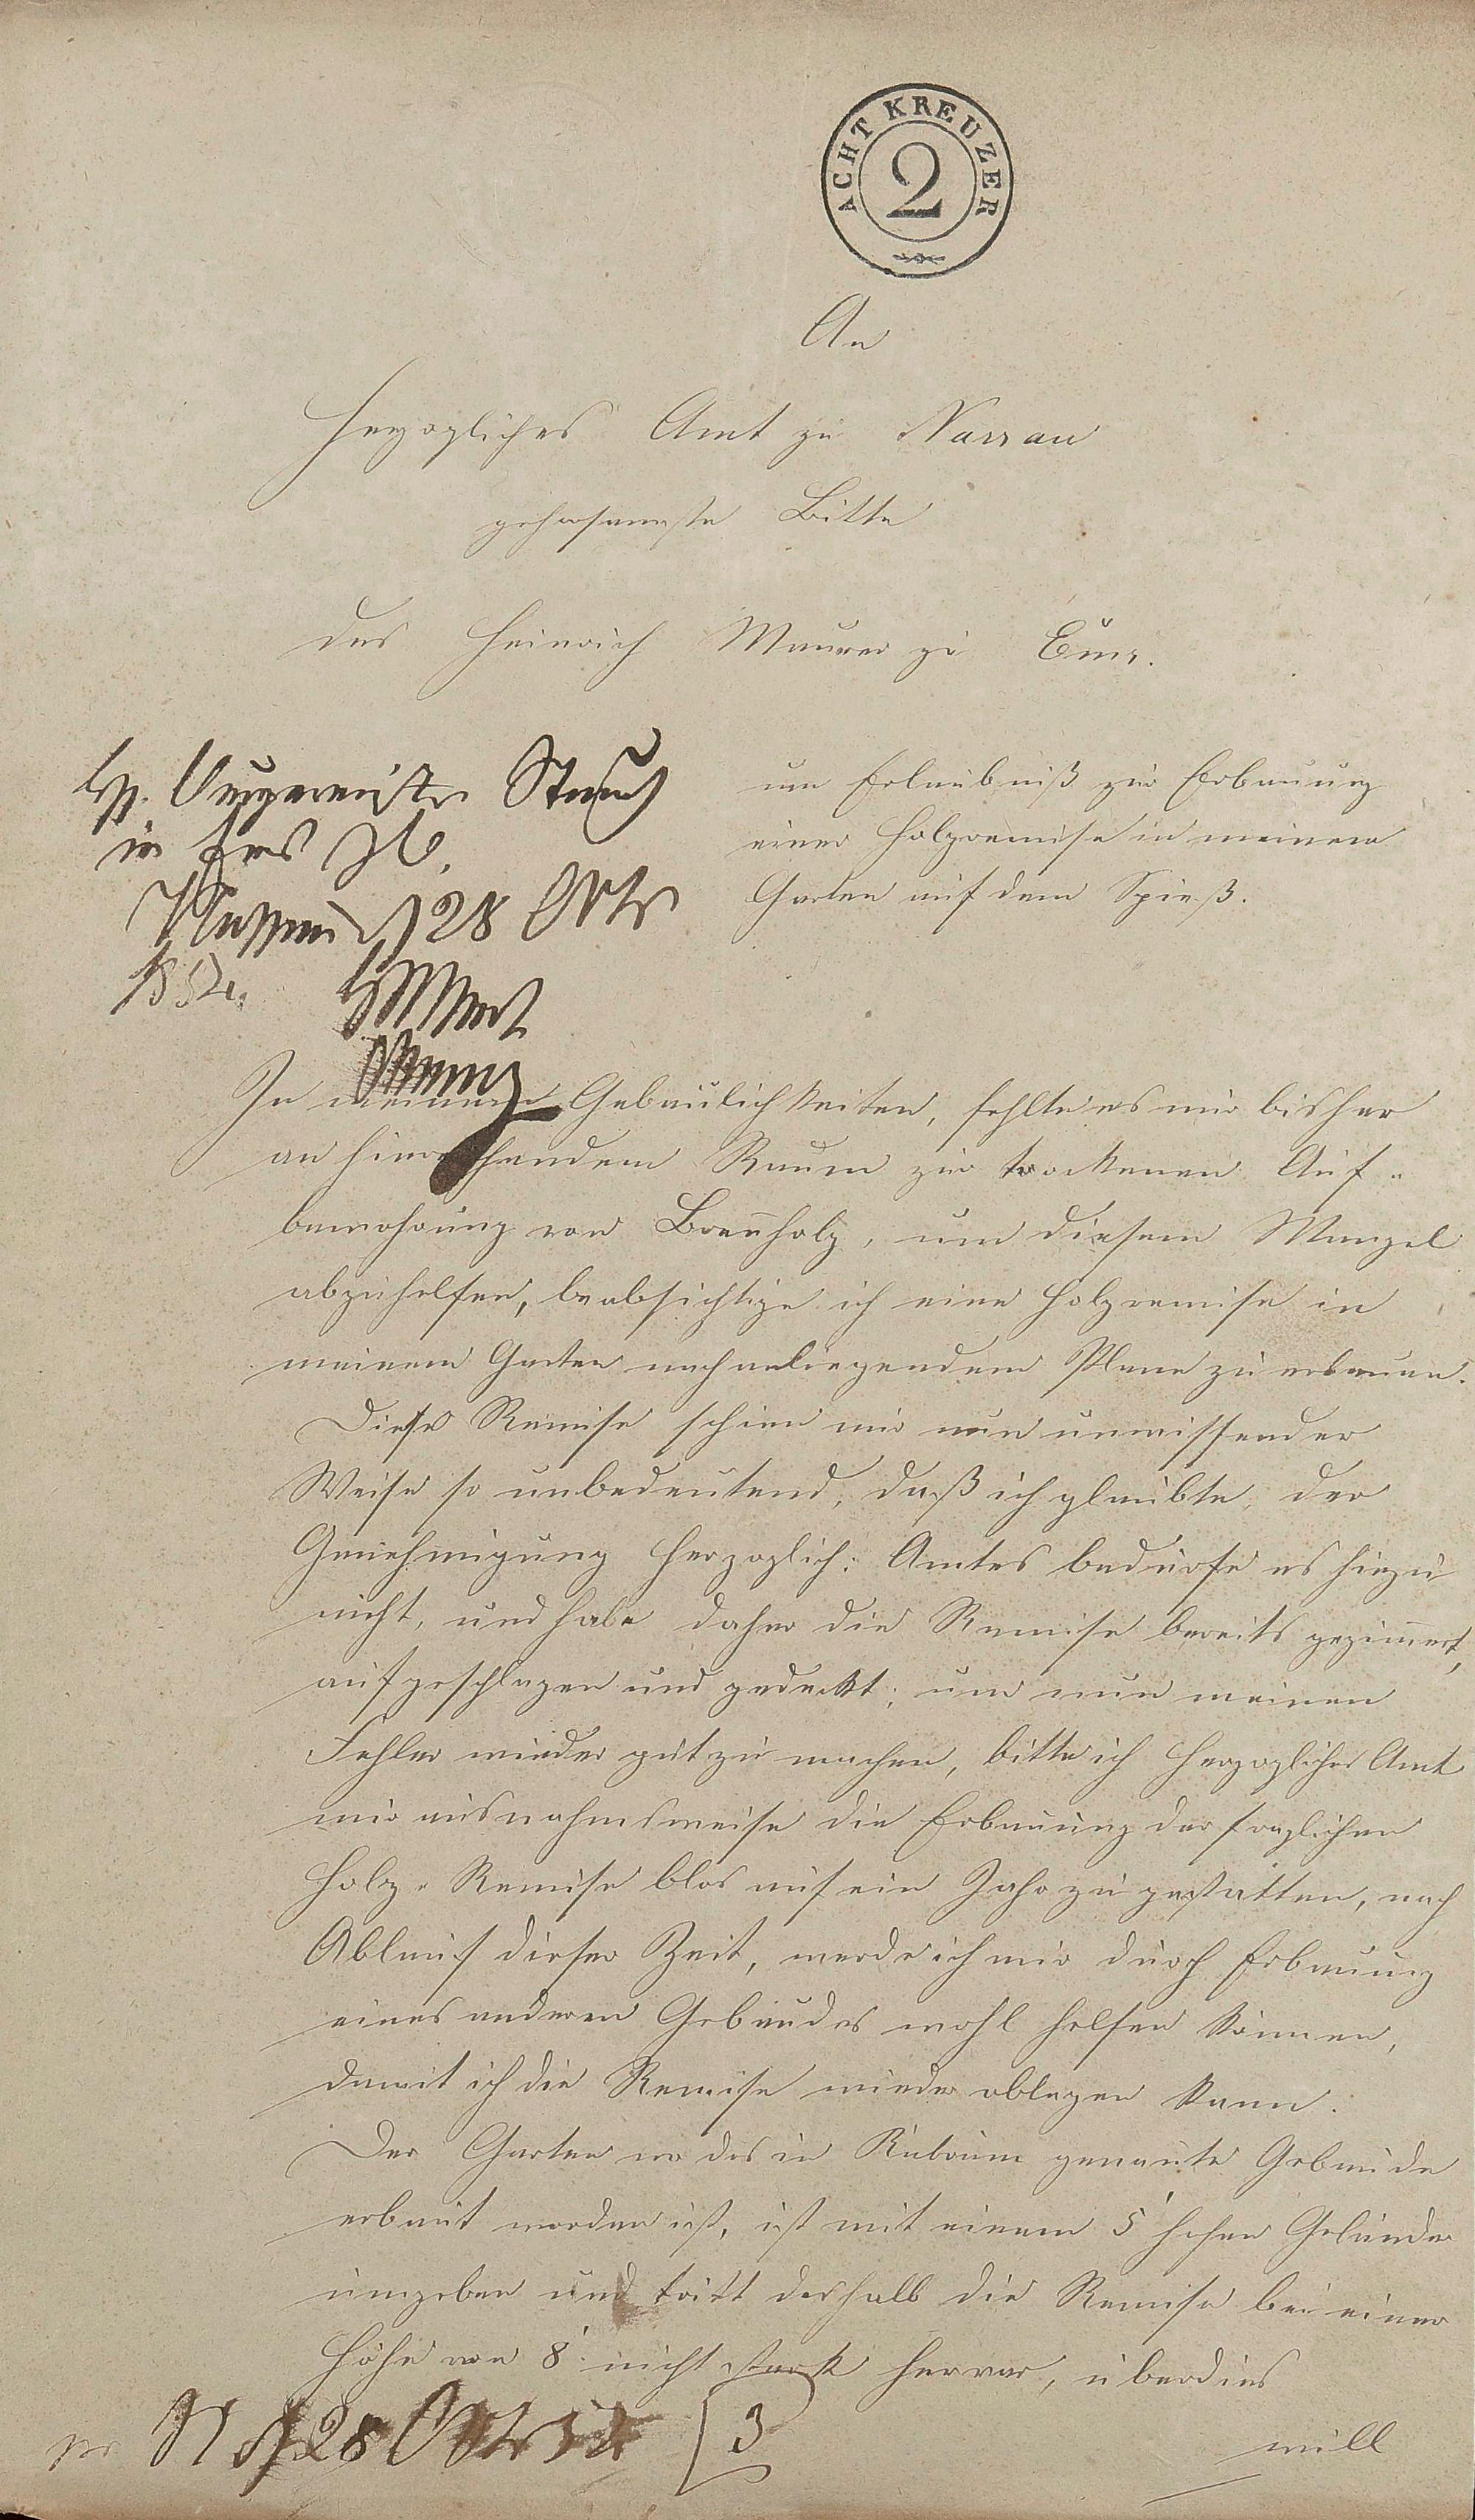 ACHT KREUZER
2
An
Herzogliches Amt zu Nassau
gehorsamste Bitte
des Heinrich Maurer zu Ems.
um Erlaubniß zur Erbauung
einer Holzremise in meinem
Garten auf dem Spieß.
H. Bürgermeister
in Ems
Nassau d 28 Octbr
1852.
In meinen Gebäulichkeiten, fehlte es mir bisher
an hinreichendem Raum zur trockenen Auf-
bewahrung von Brennholz, um diesem Mangel
abzuhelfen, beabsichtige ich eine Holzremise in
meinem Garten nach anliegendem Plane zu erbauen.
Diese Remise schien mir nun unwissender
Weise so unbedeutend, daß ich glaubte, der
Genehmigung Herzoglich: Amtes bedürfe es hiezu
nicht, und habe daher die Remise bereits gezimmert,
aufgeschlagen und gedeckt; um nun meinen
Fehler wieder gut zu machen, bitte ich Herzogliches Amt
mir ausnahmsweise die Erbauung der fraglichen
Holz-Remise blos auf ein Jahr zu gestatten, nach
Ablauf dieser Zeit, werde ich mir durch Erbauung
eines anderen Gebäudes wohl helfen können,
damit ich die Remise wieder ablegen kann.
Der Garten wo das in Rubrum genannte Gebäude
erbaut worden ist, ist mit einem 5' hohen Geländer
umgeben und tritt deshalb die Remise bei einer
Höhe von 8' nicht stark hervor, überdies
pr N d 28 Octbr 52 3
will